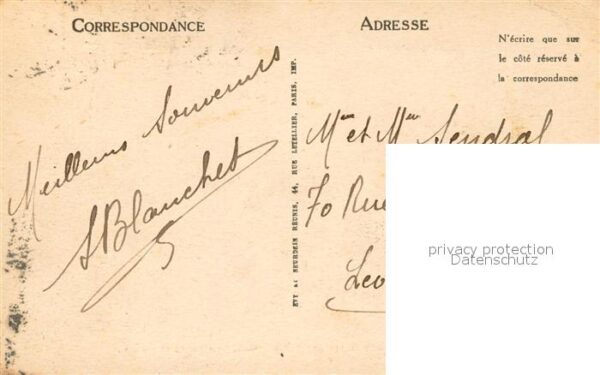 CORRESPONDANCE
ADRESSE
N'écrire que sur
le côté réservé à
la correspondance
Meilleurs Souvenirs
SBlanchet
LEVY & NEURDEIN RÉUNIS, 44, RUE LETELLIER, PARIS, IMP.
Mme et Mr Sendral
70 Rue
Lev
privacy protection
Datenschutz